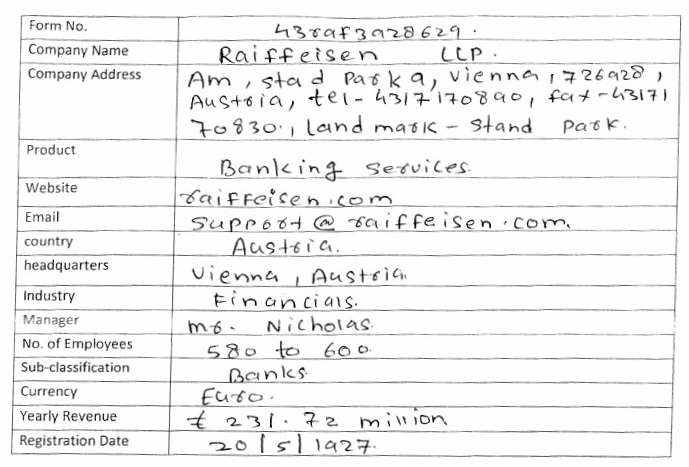 Form No. 43raf3a28629.
Company Name Raiffeisen LLP.
Company Address Am, stad Park 9, Vienna, 726928,
Austria, tel-4317170890, fax-43171
70830., land mark - Stand Park.
Product Banking services.
Website raiffeisen.com
Email support@raiffeisen.com.
country Austria.
headquarters Vienna, Austria
Industry Financials.
Manager mr. Nicholas.
No. of Employees 580 to 600.
Sub-classification Banks.
Currency Euro.
Yearly Revenue € 231.72 million
Registration Date 20/5/1927.